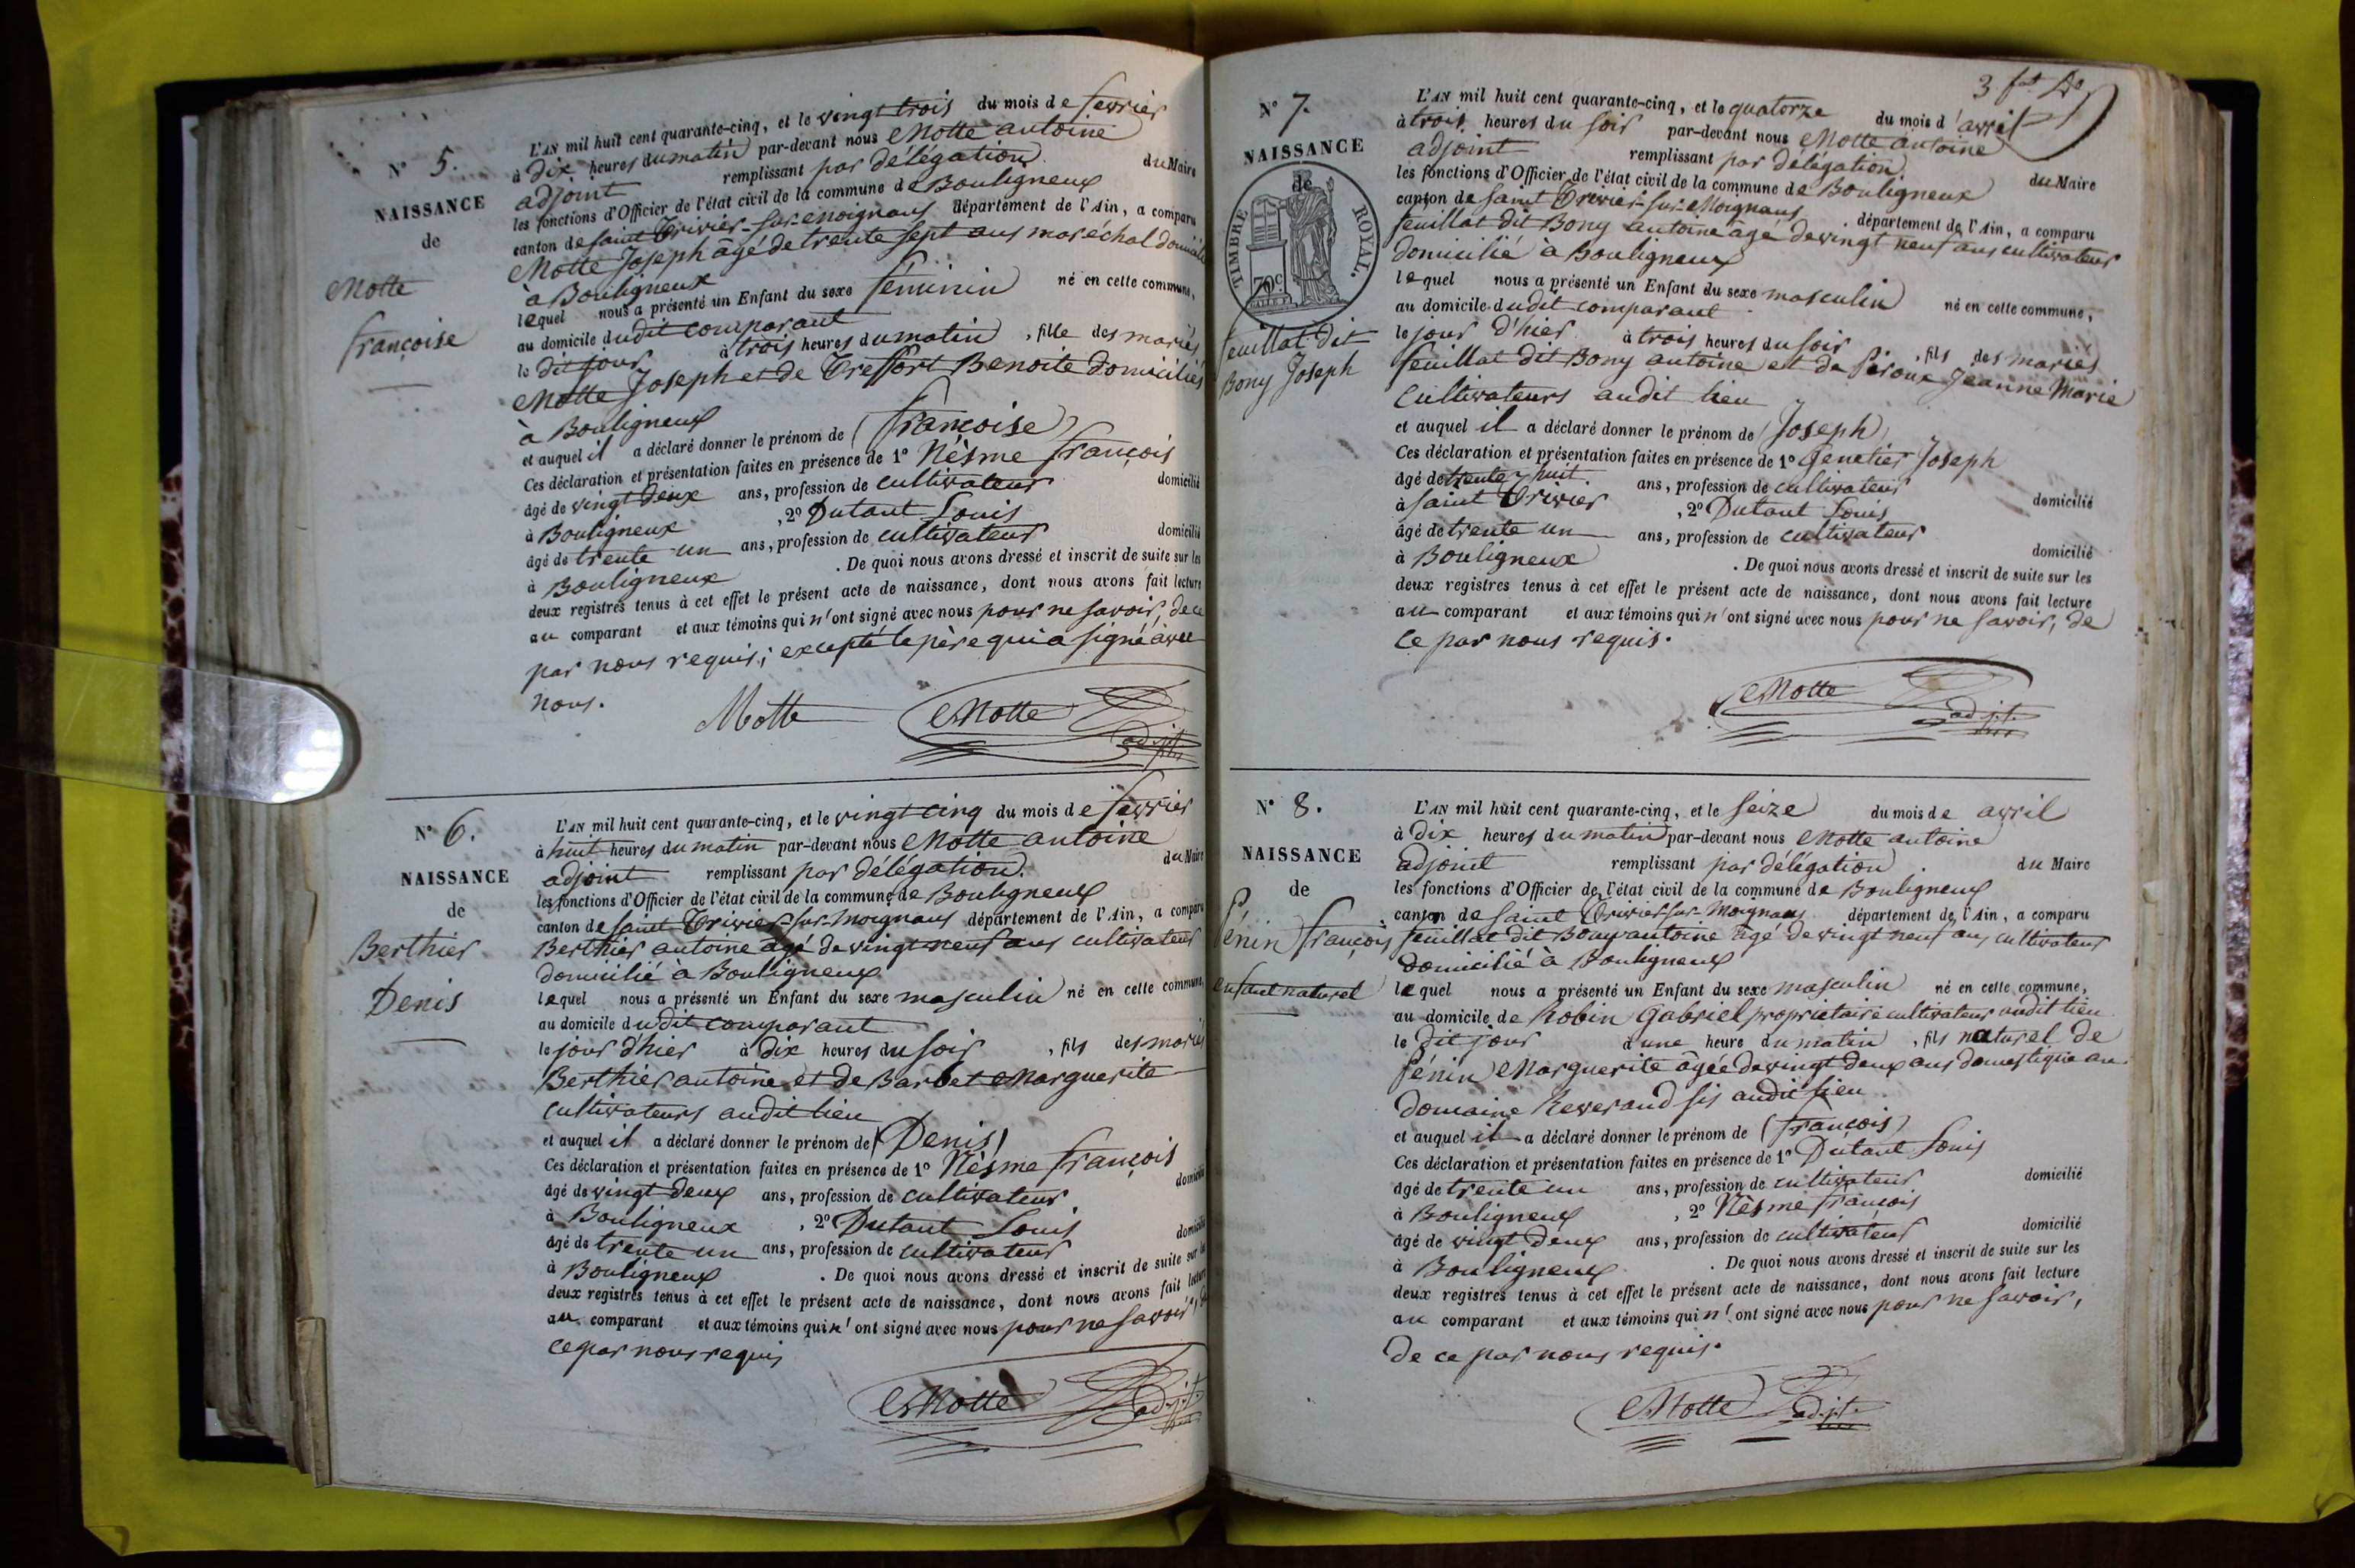 N° 5.
NAISSANCE
de
Motte
françoise
L'AN mil huit cent quarante-cinq, et le vingt trois du mois de fevrier
à dix heures du matin par-devant nous Motte antoine
adjoint remplissant par délégation du Maire
les fonctions d'Officier de l'état civil de la commune de Bouligneux
canton de saint Trivier-sur-Moignans département de l'Ain, a comparu
Motte Joseph âgé de trente sept ans maréchal domicilié
à Bouligneux
lequel nous a présenté un Enfant du sexe féminin né en cette commune,
au domicile dudit comparant
le dit jour à trois heures du matin, fille des mariés
Motte Joseph et de Treffort Benoite domiciliés
à Bouligneux
et auquel il a déclaré donner le prénom de (françoise)
Ces déclaration et présentation faites en présence de 1° Nèsme françois
âgé de vingt deux ans, profession de cultivateur domicilié
à Bouligneux, 2° Dutant Louis
âgé de trente un ans, profession de cultivateur domicilié
à Bouligneux. De quoi nous avons dressé et inscrit de suite sur les
deux registres tenus à cet effet le présent acte de naissance, dont nous avons fait lecture
au comparant et aux témoins qui n'ont signé avec nous pour ne savoir, de ce
par nous requis; excepté le père qui a signé avec
nous.
Motte Motte adjt
N° 6.
NAISSANCE
de
Berthier
Denis
L'AN mil huit cent quarante-cinq, et le vingt cinq du mois de fevrier
à huit heures du matin par-devant nous Motte antoine
adjoint remplissant par délégation du Maire
les fonctions d'Officier de l'état civil de la commune de Bouligneux
canton de saint Trivier-sur-Moignans département de l'Ain, a comparu
Berthier antoine âgé de vingt neuf ans cultivateur
domicilié à Bouligneux
lequel nous a présenté un Enfant du sexe masculin né en cette commune,
au domicile dudit comparant
le jour d'hier à dix heures du soir, fils des mariés
Berthier antoine et de Barbet Marguerite
cultivateurs audit lieu
et auquel il a déclaré donner le prénom de (Denis)
Ces déclaration et présentation faites en présence de 1° Nèsme françois
âgé de vingt deux ans, profession de cultivateur domicilié
à Bouligneux, 2° Dutant Louis
âgé de trente un ans, profession de cultivateur domicilié
à Bouligneux. De quoi nous avons dressé et inscrit de suite sur les
deux registres tenus à cet effet le présent acte de naissance, dont nous avons fait lecture
au comparant et aux témoins qui n'ont signé avec nous pour ne savoir, de
ce par nous requis
Motte adjt
3
N° 7.
NAISSANCE
de
TIMBRE ROYAL.
70c
feuillat dit
Bony Joseph
L'AN mil huit cent quarante-cinq, et le quatorze du mois d'avril
à trois heures du soir par-devant nous Motte antoine
adjoint remplissant par délégation du Maire
les fonctions d'Officier de l'état civil de la commune de Bouligneux
canton de saint Trivier-sur-Moignans département de l'Ain, a comparu
feuillat dit Bony antoine âgé de vingt neuf ans cultivateur
domicilié à Bouligneux
lequel nous a présenté un Enfant du sexe masculin né en cette commune,
au domicile dudit comparant
le jour d'hier à trois heures du soir, fils des mariés
feuillat dit Bony antoine et de Péroux Jeanne Marie
cultivateurs audit lieu
et auquel il a déclaré donner le prénom de (Joseph)
Ces déclaration et présentation faites en présence de 1° Genetier Joseph
âgé de trente huit ans, profession de cultivateur domicilié
à saint Trivier, 2° Dutant Louis
âgé de trente un ans, profession de cultivateur domicilié
à Bouligneux. De quoi nous avons dressé et inscrit de suite sur les
deux registres tenus à cet effet le présent acte de naissance, dont nous avons fait lecture
au comparant et aux témoins qui n'ont signé avec nous pour ne savoir, de
ce par nous requis.
Motte adjt.
N° 8.
NAISSANCE
de
Pénin françois
enfant naturel
L'AN mil huit cent quarante-cinq, et le seize du mois de avril
à dix heures du matin par-devant nous Motte antoine
adjoint remplissant par délégation du Maire
les fonctions d'Officier de l'état civil de la commune de Bouligneux
canton de saint Trivier-sur-Moignans département de l'Ain, a comparu
feuillat dit Bony antoine âgé de vingt neuf ans, cultivateur
domicilié à Bouligneux
lequel nous a présenté un Enfant du sexe masculin né en cette commune,
au domicile de Robin Gabriel propriétaire cultivateur audit lieu
le dit jour à une heure du matin, fils naturel de
Pénin Marguerite âgée de vingt deux ans domestique au
domaine Reverand sis audit lieu
et auquel il a déclaré donner le prénom de (françois)
Ces déclaration et présentation faites en présence de 1° Dutant Louis
âgé de trente un ans, profession de cultivateur domicilié
à Bouligneux, 2° Nèsme françois
âgé de vingt deux ans, profession de cultivateur domicilié
à Bouligneux. De quoi nous avons dressé et inscrit de suite sur les
deux registres tenus à cet effet le présent acte de naissance, dont nous avons fait lecture
au comparant et aux témoins qui n'ont signé avec nous pour ne savoir,
de ce par nous requis.
Motte adjt.